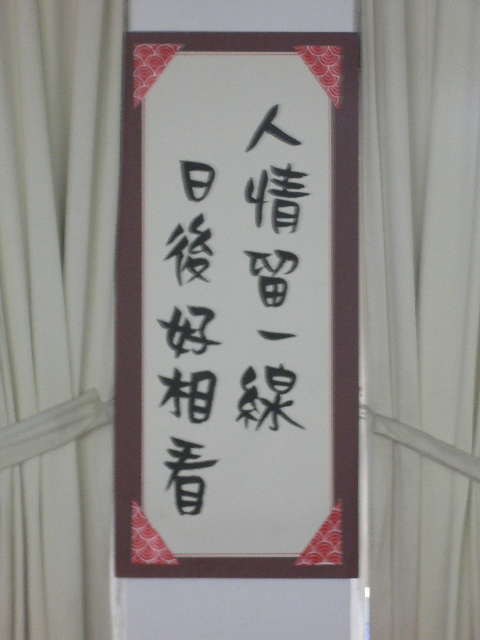 人情留一線
日後好相看